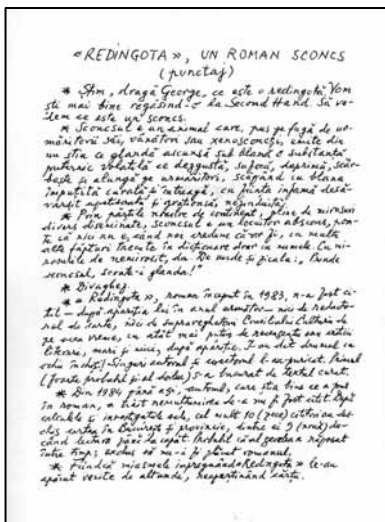 «REDINGOTA», UN ROMAN SCONCS
(punctaj)
* Știm, dragă George, ce este o redingotă. Vom
ști mai bine regăsind-o la Second Hand. Să ve-
dem ce este un sconcs.
* Sconcsul e un animal care, pus pe fugă de ur-
măritorii săi, vânători sau xenosconcși, emite din
nu știu ce glandă ascunsă sub blană o substanță
puternic volatilă ce dezgustă, sufocă, deprimă, scâr-
bește și alungă pe urmăritori, scăpând cu blana
împuțită curată și întreagă, cu ființa infamă desă-
vârșit
* Prin părțile noastre de continent, pline de mirosuri
divers diseminate, sconcsul e un locuitor obscur, poa-
te că nici nu e, când noi credem că ar fi, cu multe
alte făpturi trecute în dicționare doar cu numele. Cu mi-
rosurile de nemirosit, da. De unde și zicala: „Unde
sconcsul, scoate-i glanda!”
* Divaghez.
* «Redingota», roman început în 1983, n-a fost ci-
tit – după apariția lui în anul următor – nici de redacto-
rul de carte, nici de supraveghetorii Consiliului Culturii de
pe acea vreme, cu atât mai puțin de
literari, mari și mici, după apariție. I-au dat drumul cu
ochii închiși! Singuri autorul și corectorul l-au parcurs. Primul
(foarte probabil și al doilea) s-a bucurat de textul curat.
* Din 1984 până azi, autorul, care știa bine ce a pus
în roman, a trăit nemulțumirea de-a nu fi fost citit. După
calculele și investigațiile sale, cel mult 10 (zece) cititori au des-
chis cartea în București și provincie, dintre ei 9 (nouă) du-
când lectura până la capăt. Probabil că al zecelea a răposat
între timp; exclus să nu-i fi plăcut romanul.
* Fiindcă miasmele impregnând «Redingota» le-au
apărut venite de altundeva, neaparținând cărții.